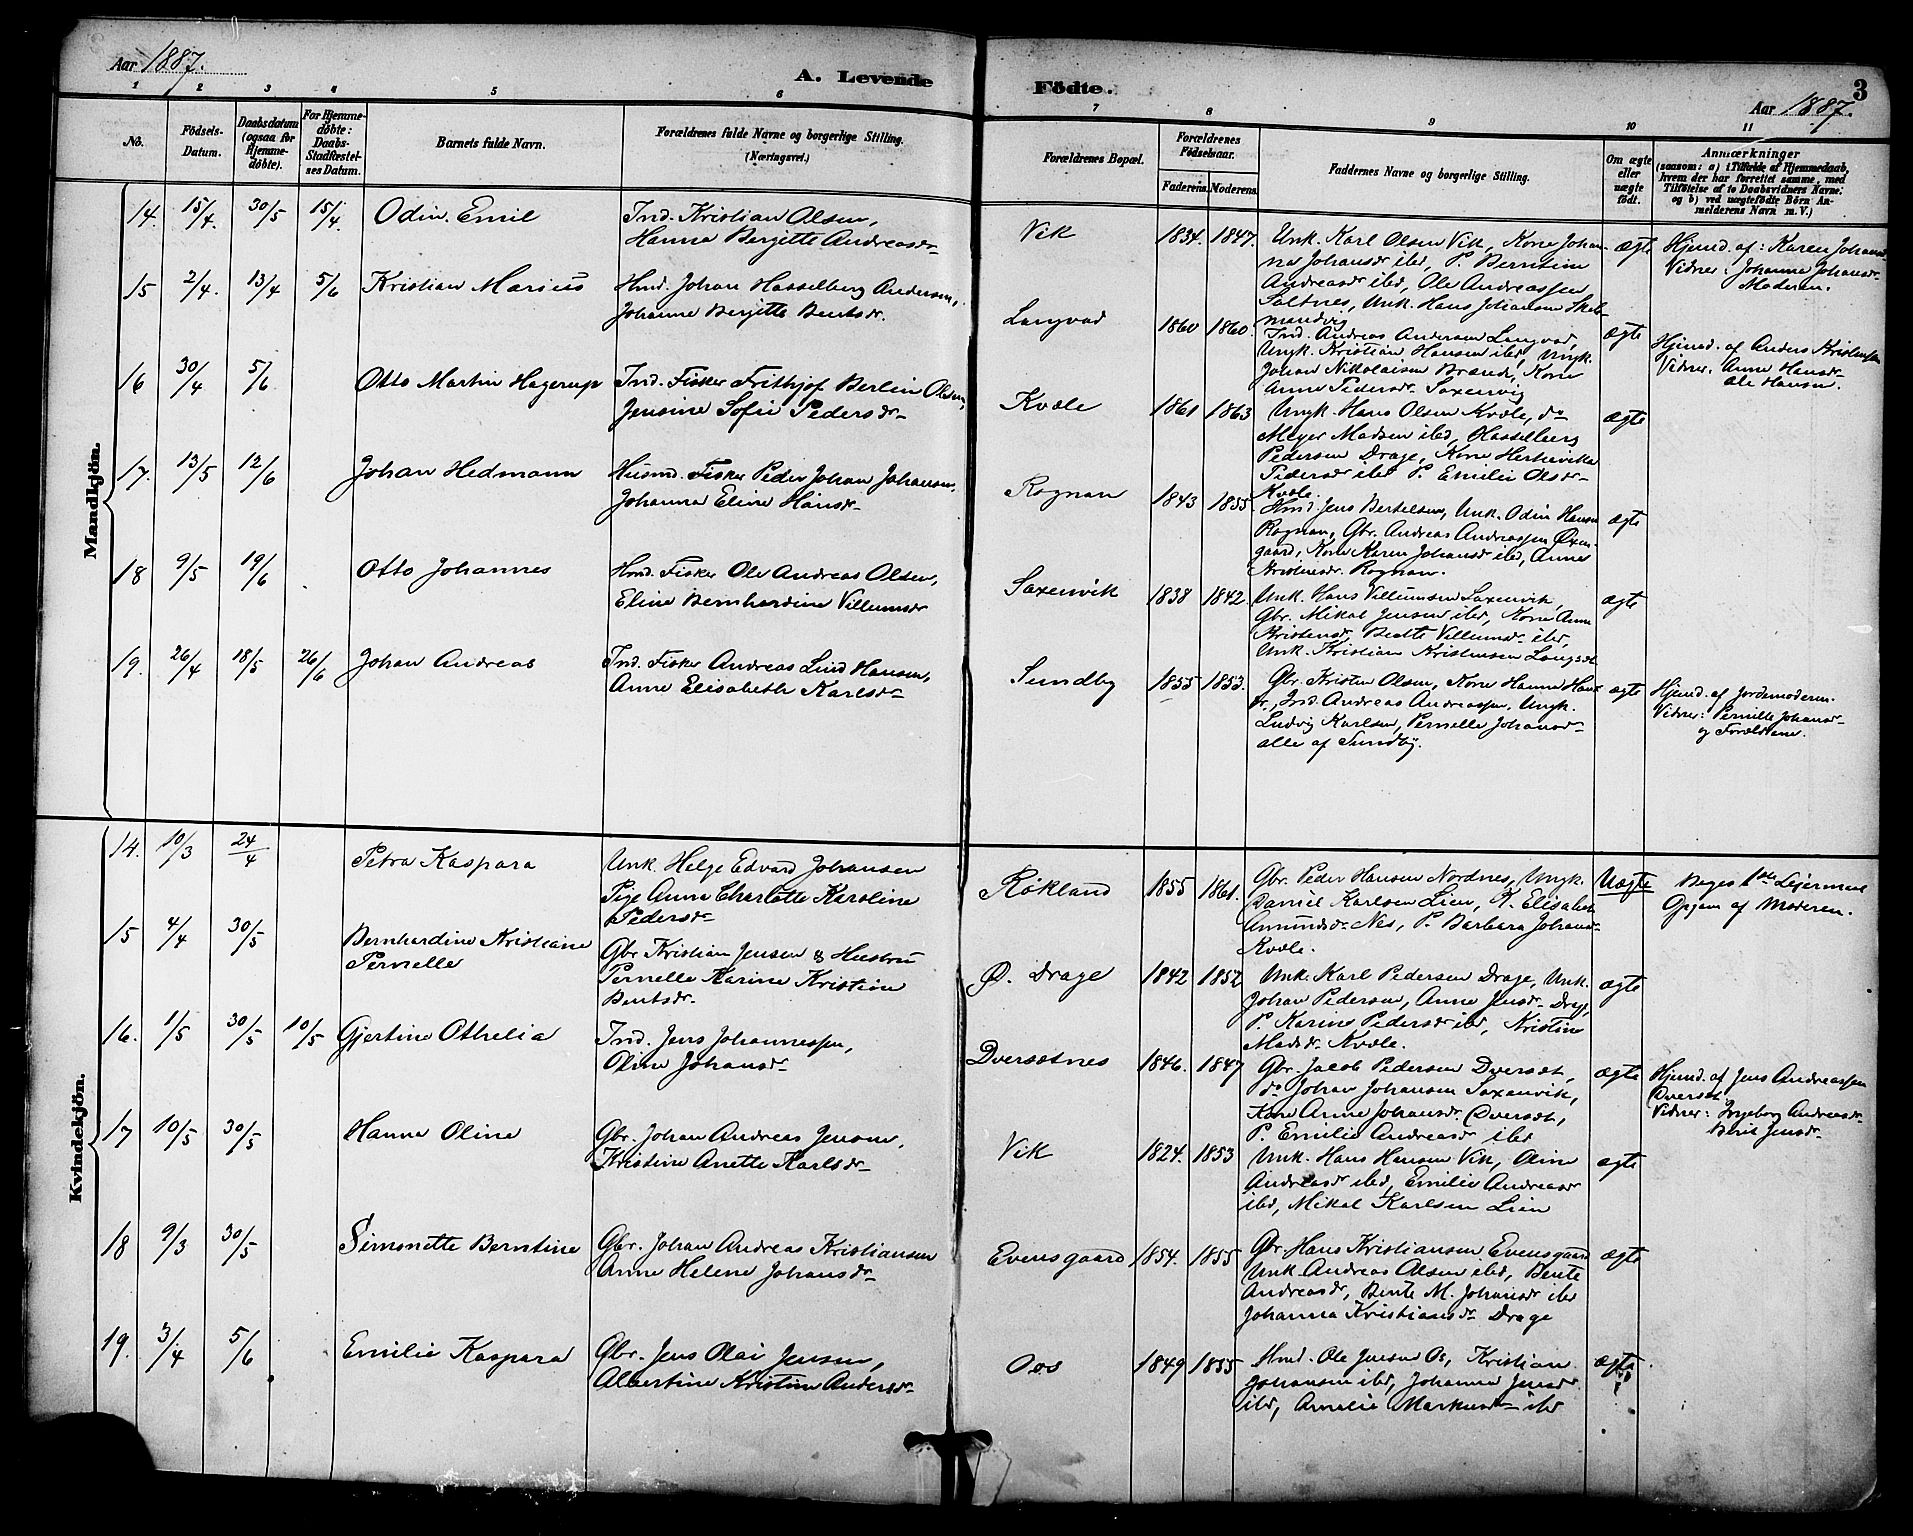 Aar 1887.
A. Levende Födte.
3
Aar 1887.
1 2 3 4 5 6 7 8 9 10 11
No.
Födsels-Datum.
Daabsdatum (ogsaa for Hjemme-döbte).
For Hjemme-döbte: Daabs-Stadfæstel-ses Datum.
Barnets fulde Navn.
Forældrenes fulde Navne og borgerlige Stilling. (Næringsvei.)
Forældrenes Bopæl.
Forældrenes Födselsaar.
Faderens. Moderens.
Faddernes Navne og borgerlige Stilling.
Om ægte eller uægte födt.
Anmærkninger
(saasom: a) i Tilfælde af Hjemmedaab, hvem der har forrettet samme, med Tilföielse af to Daabsvidners Navne; og b) ved uægtefödte Börn Anmelderens Navn m. V.)
Mandkjön.
14. 15/4. 30/5 15/4. Odin Emil
Ind. Kristian Olsen,
Hanna Bergitte Andreasdr
Vik 1834. 1847.
Unk. Karl Olsen Vik, Kone Johan-
na Johansdr ibd, P. Berntine
Andreasdr ibd, Ole Andreassen
Saltnes, Unk. Hans Johansen Skol-
mandvig
ægte
Hjemd. af: Karen Johansd.
Vidner: Johanna Johansdr
Moderen.
15 2/4. 13/4 5/6 Kristian Marius
Hmd. Johan Hasselberg Andersen,
Johanne Bergitte Bentsdr.
Langvad 1860 1860.
Ind. Andreas Andersen Langvad,
Ungk. Kristian Hansen ibd, Ungk.
Johan Nikolaisen Brænd, Kone
Anne Pedersdr Saxenvig
ægte
Hjemd. af Anders Kristensen
Vidner: Anne Hansdr
Ole Hansen.
16 30/4 5/6 Otto Martin Hagerup
Ind. Fisker Frithjof Berlin Olsen,
Jensine Sofie Pedersdr
Kvæle 1861 1863
Ungk. Hans Olsen Kvæle, do
Meyer Madsen ibd, Hasselberg
Pedersen Drage, Kone
Pedersdr ibd P. Emilie Olsdr
Kvæle.
ægte
17. 13/5 12/6 Johan Hedmann
Husmd. Fisker Peder Johan Johansen,
Johanna Eline Hansdr
Rognan 1843 1855.
Hmd. Jens Bertelsen, Unk. Odin Hansen
Rognan, Gbr. Andreas Andreassen Øxen-
gaard, Kone Karen Johansdr ibd, Anne
Kristensdr. Rognan.
ægte
18 9/5 19/6 Otto Johannes
Hmd. Fisker Ole Andreas Olsen,
Eline Bernhardine Villumsdr
Saxenvik 1838 1842.
Unk. Hans Villumsen Saxenvik,
Gbr. Mikal Jensen ibd, Kone Anne
Kristensdr, Beate Villumsdr ibd,
Unk. Kristian Kristensen Langvad
ægte
19. 26/4 18/5 26/6 Johan Andreas
Ind. Fisker Andreas Lind Hansen,
Anne Elisabeth Karlsdr
Sundby 1855 1853.
Gbr. Kristen Olsen, Kone Hanna Hans-
dr, Ind. Andreas Andreassen, Ungk.
Ludvig Karlsen, Pernelle Johansdr
alle af Sundby.
ægte
Hjemd. af Jordemoderen.
Vidner: Pernille Johansdr
og Forældrene.
Kvindekjön.
14. 10/3 24/4 Petra Kaspara
Unk. Helge Edvard Johansen
Pige Anne Charlotte Karoline
Pedersdr
Røkland 1855 1861.
Gbr. Peder Hansen Nordnes, Ungk.
Daniel Karlsen Lien, K. Elisabet
Amundsdr Nes, P. Barbara Johansdr
Kvæle.
Uægte
Beges 1ste Leiermaal
Opgiven af Moderen.
15 4/4 30/5 Bernhardine Kristiane
Pernelle
Gbr Kristian Jensen & Hustru
Pernelle Karine Kristine
Bentsdr.
Ø. Drage 1842 1852
Unk. Karl Pedersen Drage, Unk.
Johan Pedersen, Anne Jensdr Drage,
P. Karine Pedersdr ibd, Kristine
Madsdr Kvæle.
ægte
16. 1/5 30/5 10/5 Gjertine Othelia
Ind. Jens Johannessen,
Oline Johansdr
Dversætnes 1846. 1847
Gbr. Jacob Pedersen Dverset,
do Johan Johansen Saxenvik,
Kone Anne Johansdr. Dverset,
P. Emilie Andreasdr ibd
ægte
Hjemd. af Jens Andreassen
Dverset
Vidner: Ingeborg Andreasdr
Berit Jensdr
17 10/5 30/5 Hanna Oline
Gbr. Johan Andreas Jensen,
Kristine Anette Karlsdr
Vik 1824. 1853
Unk. Hans Hansen Vik, Oline
Andreasdr ibd, Emilie Andreasdr
ibd, Mikal Karlsen Lien
ægte
18 9/3 30/5 Simonette Berntine
Gbr. Johan Andreas Kristiansen
Anne Helene Johansdr
Evensgaard 1854. 1855
Gbr. Hans Kristiansen Evensgaard
Unk. Andreas Olsen ibd, Bente
Andreasdr, Bente M. Johansdr ibd
Johanna Kristiansdr Drage
ægte
19. 3/4 5/6 Emilie Kaspara
Gbr. Jens Olai Jensen,
Albertine Kristine Andersdr
Oos 1849 1855
Hmd. Ole Jensen Os, Kristian
Johansen ibd, Johanna Jensdr
ibd, Amalie Markusdr ibd
ægte